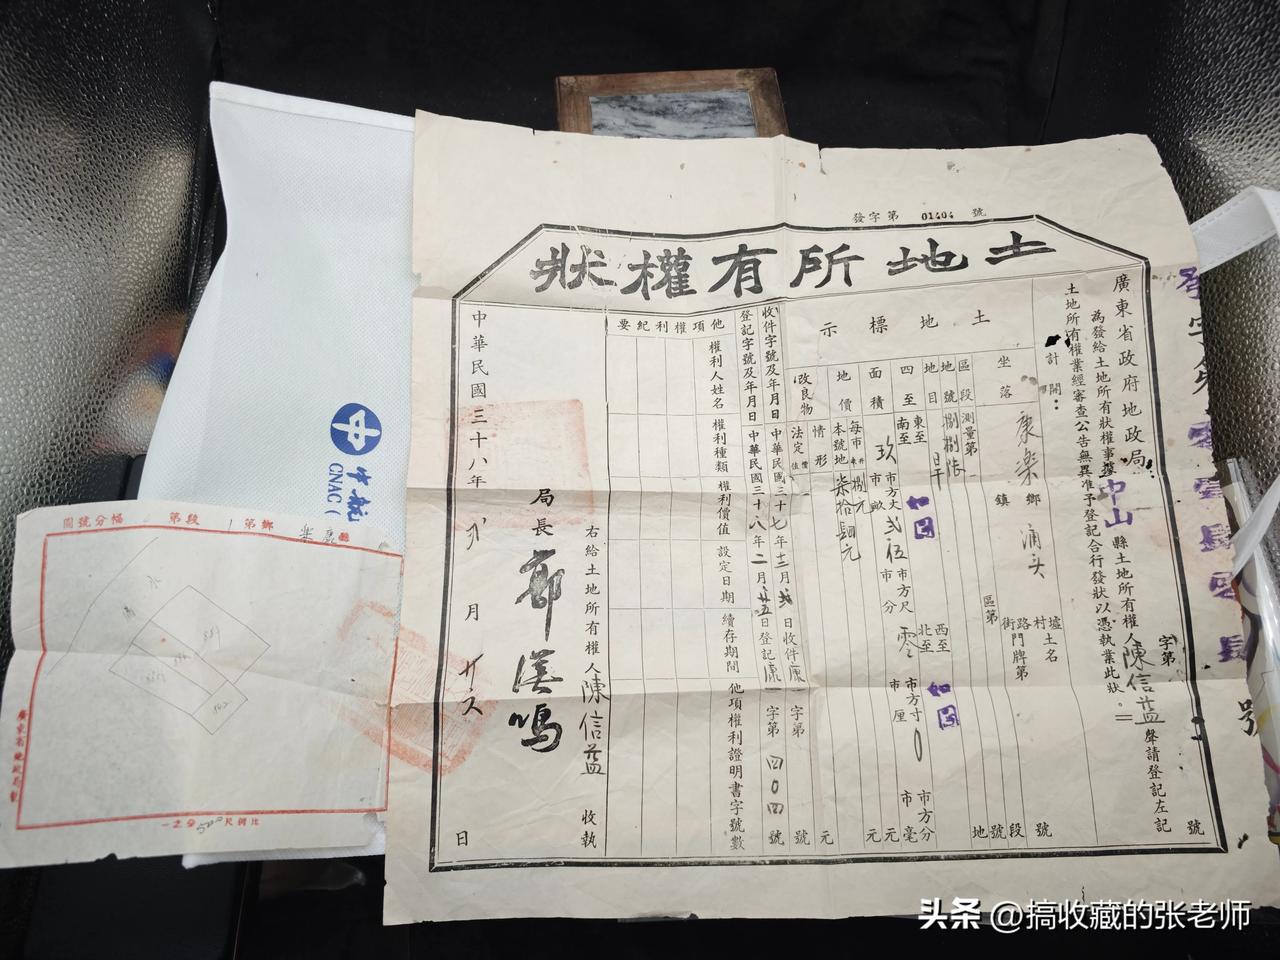 發字第 01404 號
土地所有權狀
字第 號
廣東省政府地政局
為發給土地所有狀權事據中山縣土地所有權人陳信益聲請登記左記
土地所有權業經審查公告無異准予登記合行發狀以憑執業此狀
計開：
土地標示
坐落 康樂鄉鎮 涌头 村路街 墟土名 門牌第 號
區段 測量第 區第 段
地號 捌捌陸 號
地目 旱 地
四至 東至 南至 如图 西至 北至 如图
面積 玖市方丈 弍伍市方尺 零市方寸 0市方分
市畝 市分 市厘 市毫
地價 每市 捌元 元
本號地 柒拾肆元 元
改良物 情形
法定價值 元
收件字號及年月日 中華民國三十七年十二月 日收件康字第 號
登記字號及年月日 中華民國三十八年二月廿五日登記康字第四0四號
他項權利紀要
權利人姓名 權利種類 權利價值 設定日期 續存期間 他項權利證明書字號數
右給土地所有權人陳信益 收執
局長
中華民國三十八年 弍月 日
康樂鄉 第1段 第 幅分號圖
887
廣東省地政局製
比例尺 500分之一
中航
CNAC
头条 @搞收藏的张老师